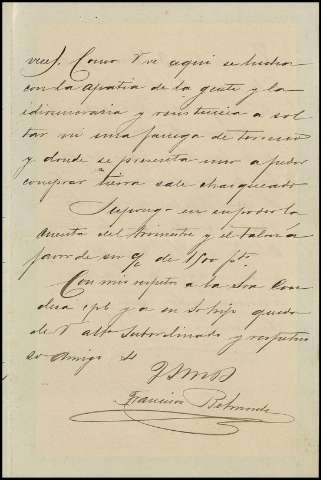 veces. Como V ve aqui se lucha
con la apatia de la gente y la
y resistencia a sol
tar ni una fanega de terreno
y donde se presenta uno a poder
comprar tierra sale chasqueado
Supongo en su poder la
cuenta del trimestre y el talon a
favor de su % de 1500 pts.
Con mis respetos a la Sra Con
desa y a su hijo queda
de V afto subordinado y respetuo
so amigo
Francisco